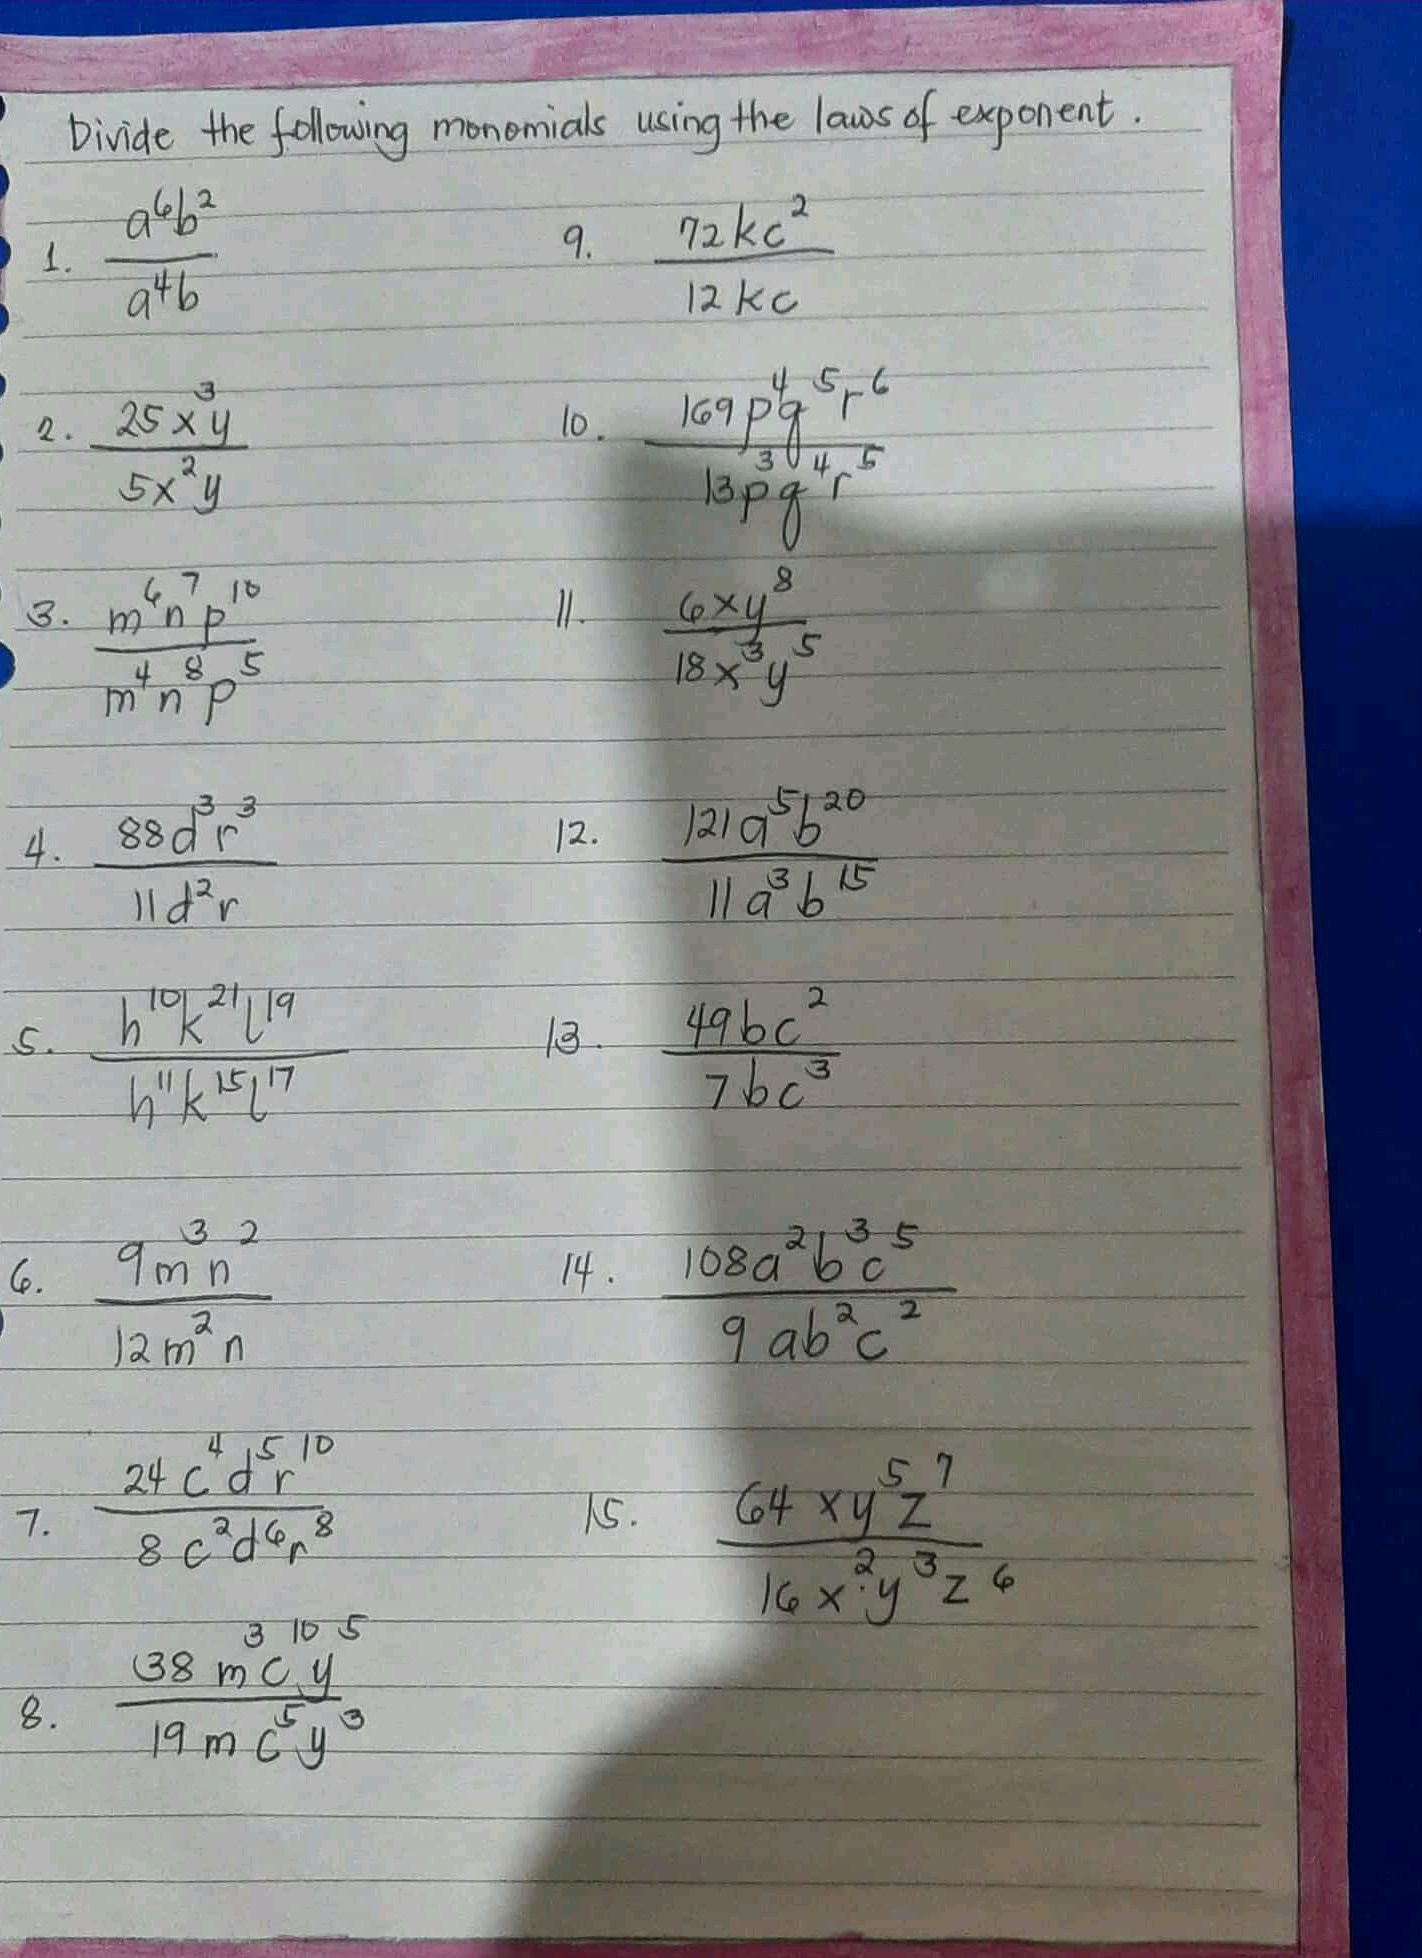 Divide the following monomials using the laws of exponent.
1. a⁶b² / a⁴b
2. 25x³y / 5x²y
3. m⁶n⁷p¹⁰ / m⁴n⁸p⁵
4. 88d³r³ / 11d²r
5. h¹⁰k²¹l¹⁹ / h¹¹k¹⁵l¹⁷
6. 9m³n² / 12m²n
7. 24c⁴d⁵r¹⁰ / 8c²d⁶r⁸
8. 38m³c¹⁰y⁵ / 19mc⁵y³
9. 72kc² / 12kc
10. 169p⁴q⁵r⁶ / 13p³q⁴r⁵
11. 6xy⁸ / 18x³y⁵
12. 121a⁵b²⁰ / 11a³b¹⁵
13. 49bc² / 7bc³
14. 108a²b³c⁵ / 9ab²c²
15. 64xy⁵z⁷ / 16x²y³z⁶